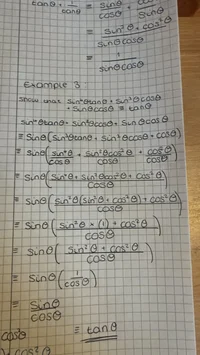 tanθ + 1/tanθ ≡ sinθ/cosθ + cosθ/sinθ
≡ sin²θ + cos²θ / sinθcosθ
≡ 1 / sinθcosθ
Example 3
Show that sin⁴θtanθ + sin³θcosθ
+ sinθcosθ ≡ tanθ
sin⁴θtanθ + sin³θcosθ + sinθcosθ
≡ sinθ(sin³θtanθ + sin²θcosθ + cosθ)
≡ sinθ(sin⁴θ/cosθ + sin²θcos²θ/cosθ + cos²θ/cosθ)
≡ sinθ(sin⁴θ + sin²θcos²θ + cos²θ / cosθ)
≡ sinθ(sin²θ(sin²θ + cos²θ) + cos²θ / cosθ)
≡ sinθ(sin²θ × (1) + cos²θ / cosθ)
≡ sinθ(sin²θ + cos²θ / cosθ)
≡ sinθ(1/cosθ)
≡ sinθ/cosθ
≡ tanθ
cosθ